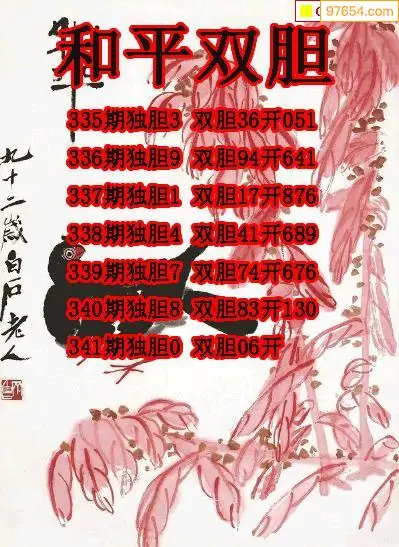 97654.com
和平双胆
335期独胆3 双胆36开051
336期独胆9 双胆94开641
337期独胆1 双胆17开876
338期独胆4 双胆41开689
339期独胆7 双胆74开676
340期独胆8 双胆83开130
341期独胆0 双胆06开
九十二岁白石老人